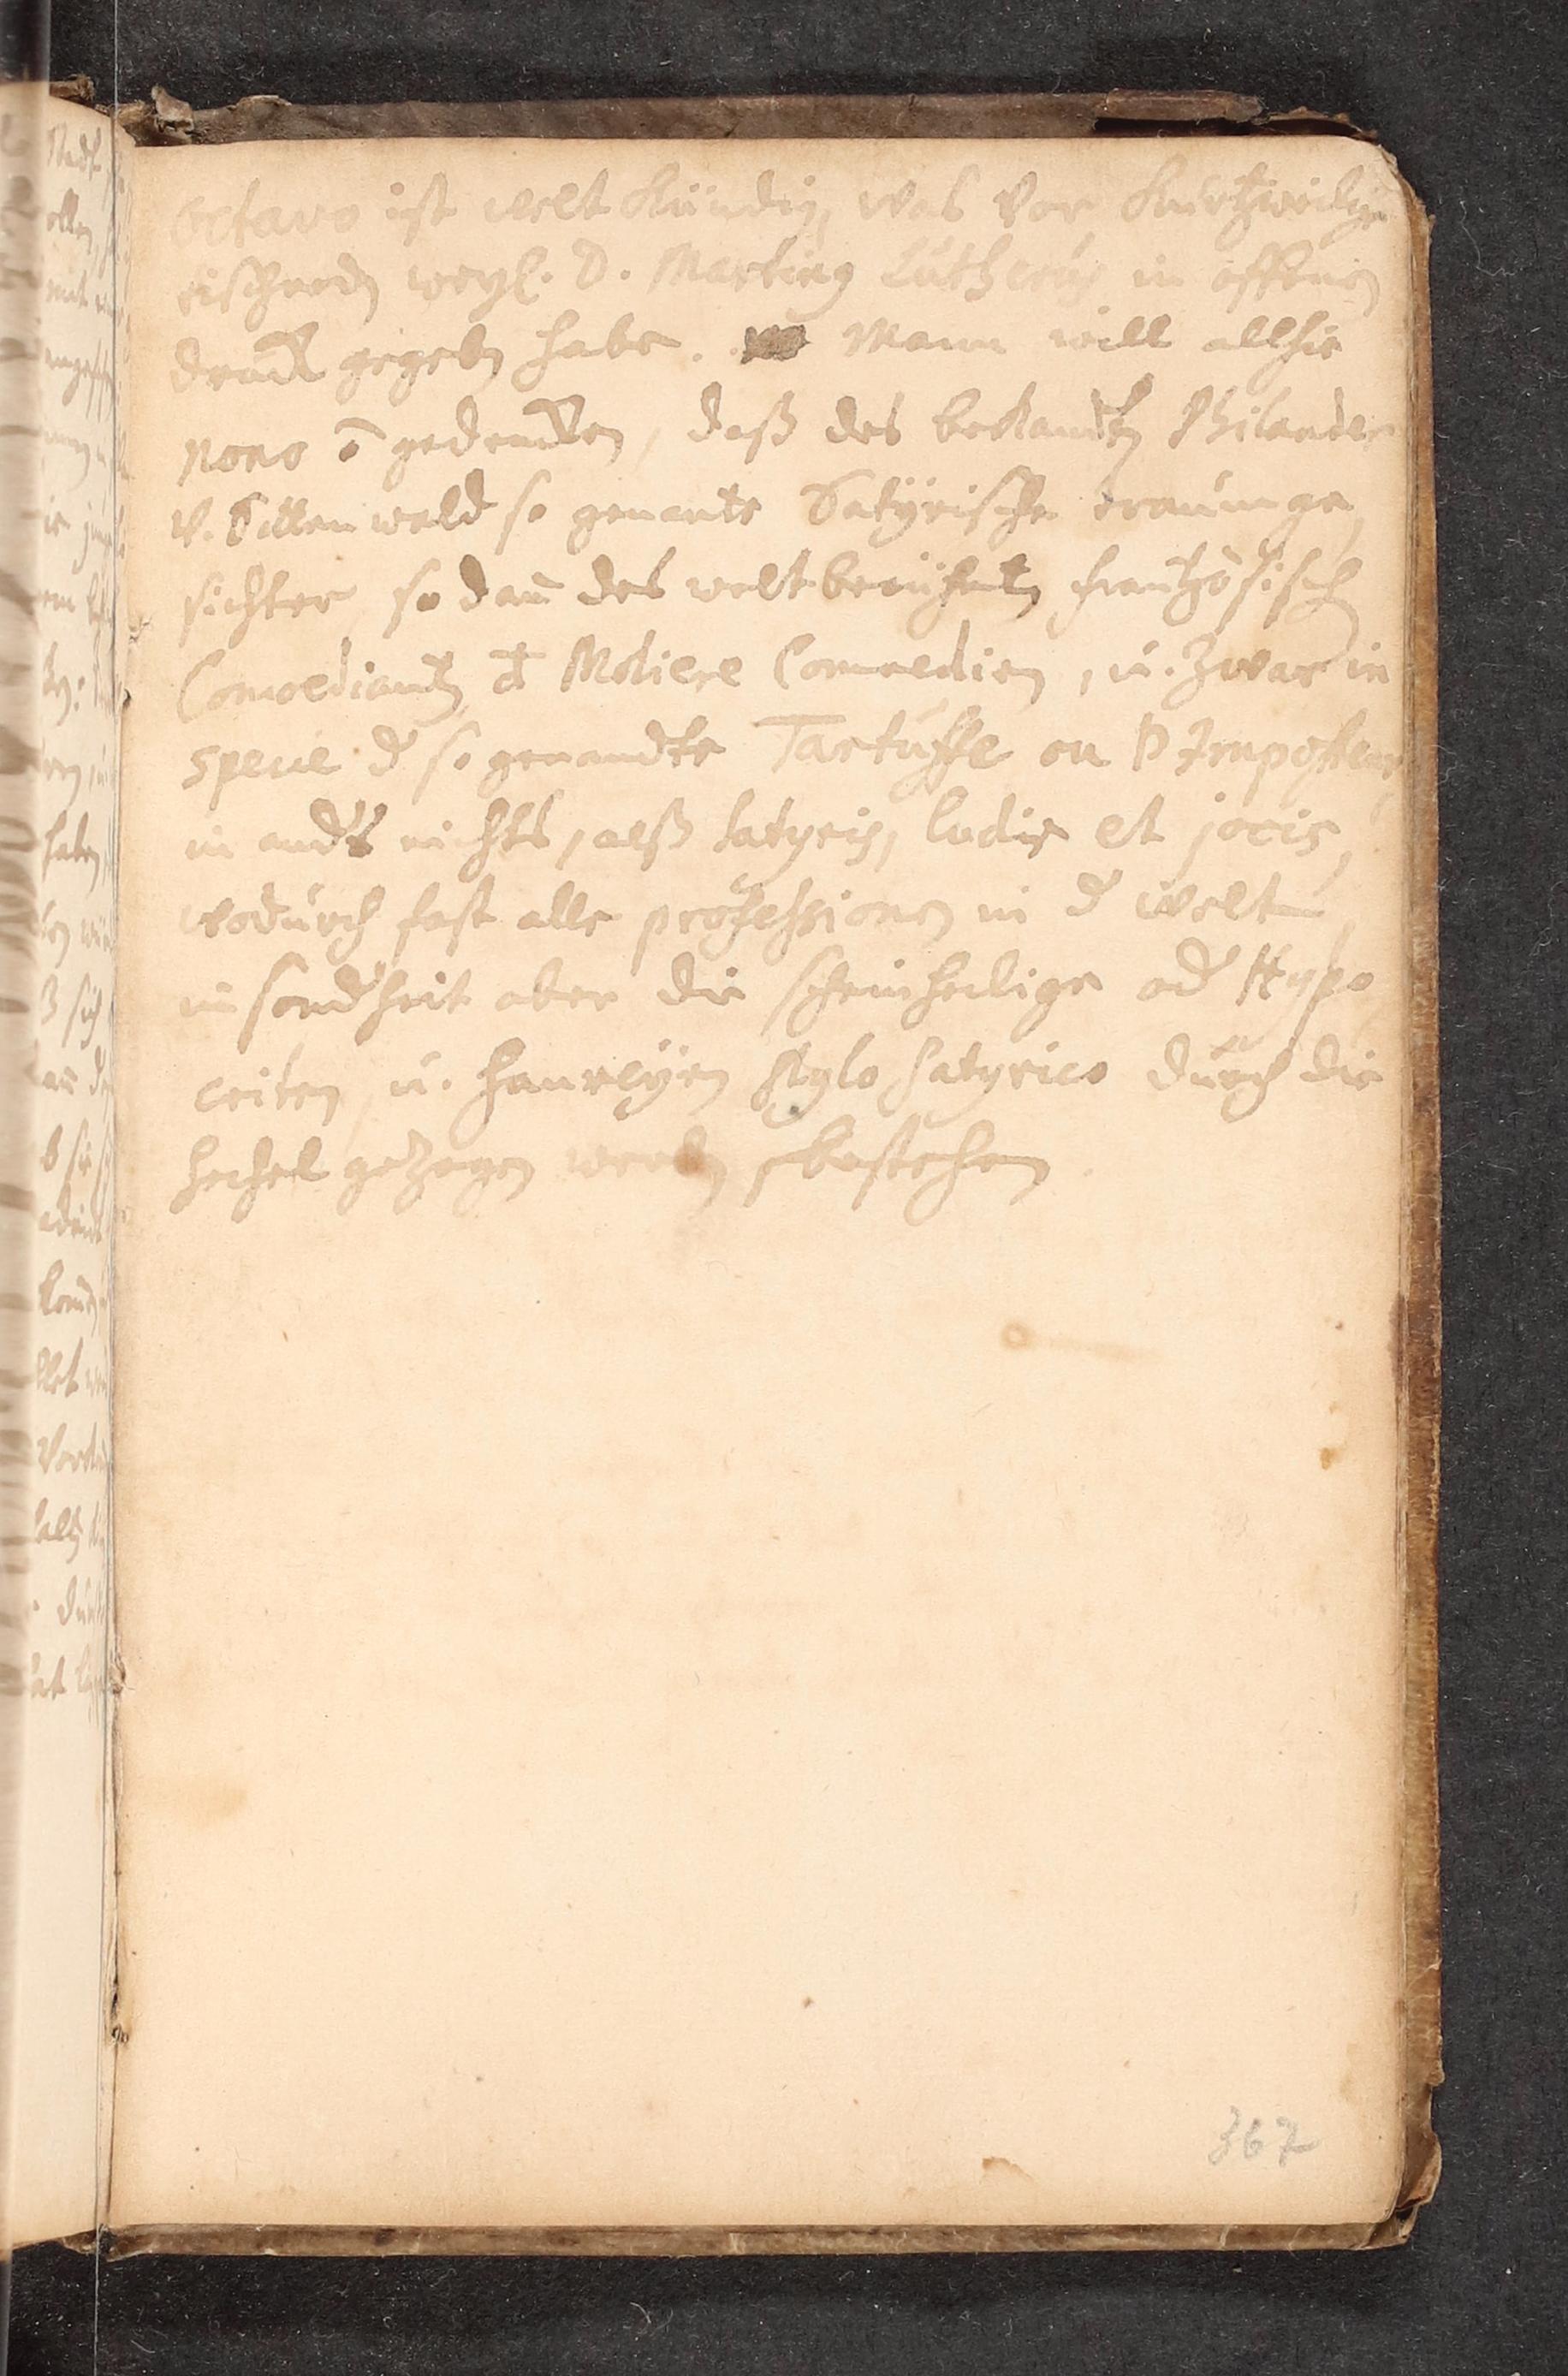 octavo ist welt kündig, was vor kurtzweilige
tischreden weyl. D. Martinus Lutherus in offenen
druck gegeben habe. Mann will allhie
nono ō gedencken, daß des bekandten Philander
v. Sittenwald so genante Satÿrische traumge,
sichter, so dan̄ des weltberühmten frantzösisch
Comoedianten Moliere Comoedien, u. zwar in
specie d so genandte Tartuffe ou l'Imposteur,
in anders nichts, alß satyris, ludis et jocis,
wodurch fast alle professionen in d welt,
in sondheit aber die scheinheilige od Hypo,
criten, u. hanreÿen stylo satyrico durch die
hechel gezogen werden, bestehen.
367